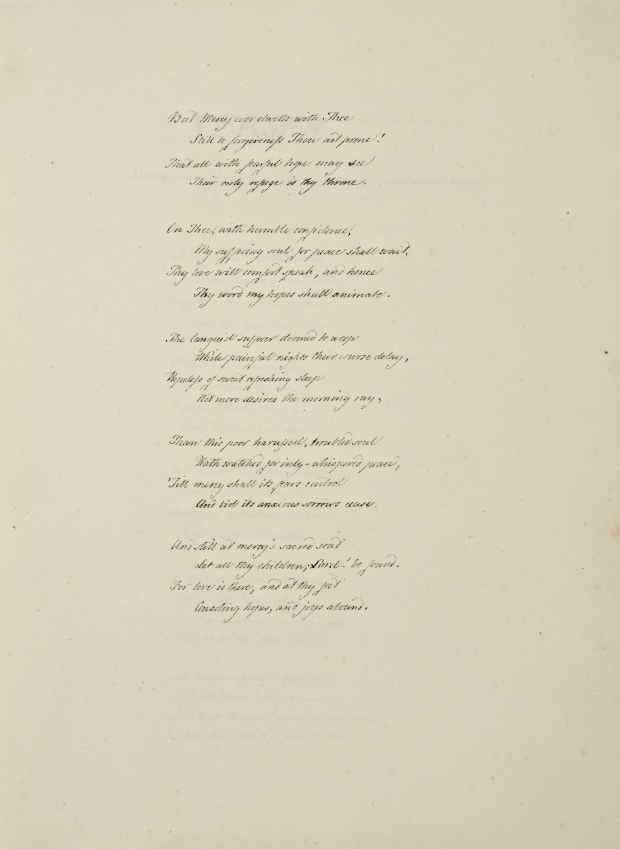 But Mercy ever dwells with Thee
Still to forgiveness Thou art prone!
That all with fearful hope may see
Their only refuge is thy throne.
On Thee, with humble confidence,
My suffering soul for peace shall wait,
Thy love will comfort speak, and hence
Thy word my hopes shall animate.
The languid sufferer doomed to weep
While painful nights their course delay,
Hopeless of sweet refreshing sleep
Not more desires the morning ray,
Than this poor harassed, troubled soul
Hath watched for inly-whispered peace,
'Till mercy shall its fears control
And bid its anxious sorrows cease.
And still at mercy's sacred seat
Let all thy children, Lord! be found.
For love is there, and at thy feet
Consoling hopes, and joys abound.